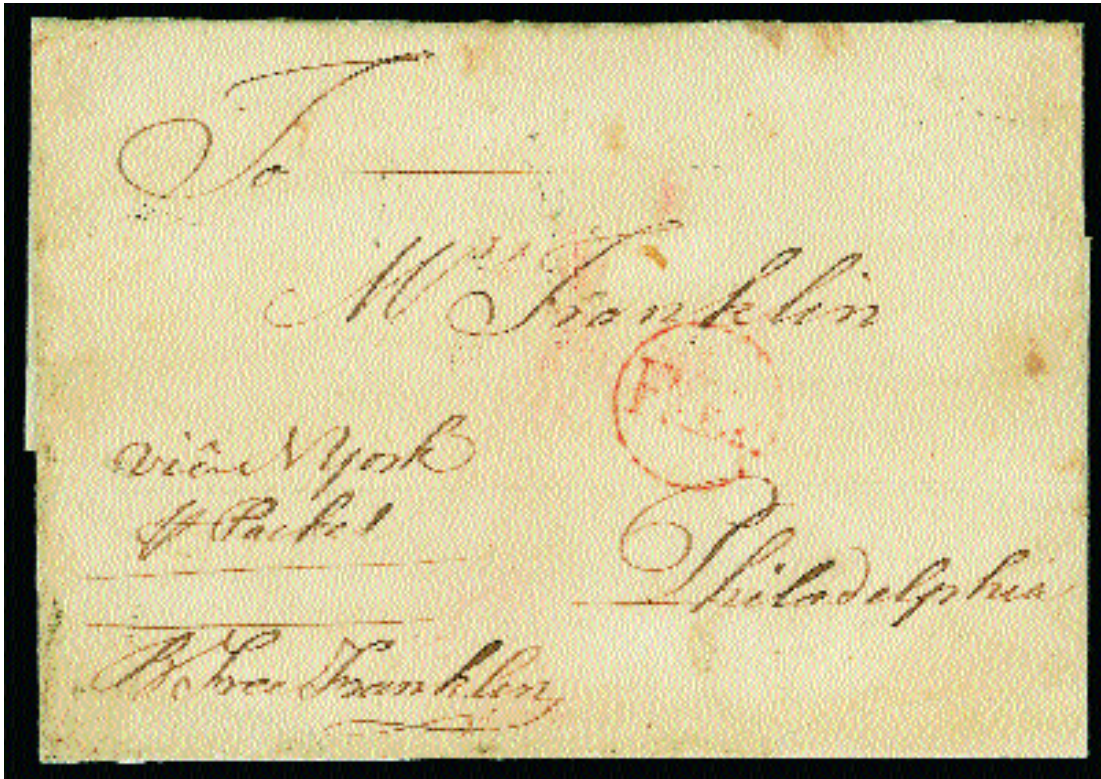 To
Mrs Franklin
viâ N York
⅌ Packet
Philadelphia
B Free Franklin